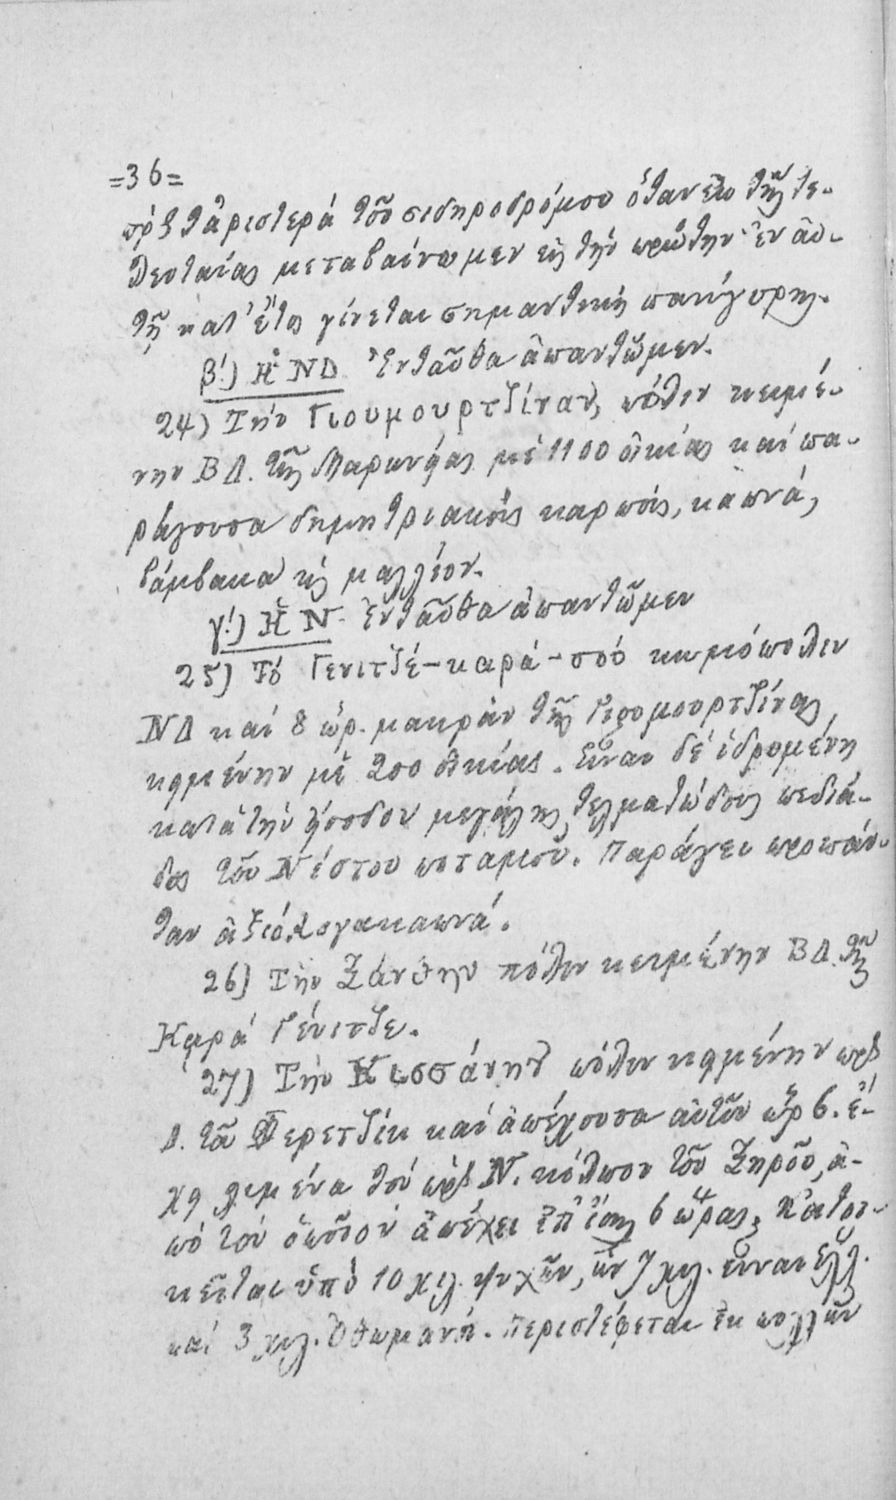 =36=
πρὸς τἀριστερά τοῦ σιδηροδρόμου ὅταν ἐκ τῆς τε-
λευταίας μεταβαίνωμεν εἰς τήν πρώτην· ἐν αὐ-
τῇ κατ' ἔτος γίνεται σημαντική πανήγυρις.
β.) Ἡ ΝΔ Ἐνταῦθα ἀπαντῶμεν.
24) Τήν Γιουμουρτζίναν, πόλιν κειμέ-
νην ΒΔ. τῆς Μαρωνείας μέ 1100 οἰκίας καί πα-
ράγουσα δημητριακούς καρπούς, καπνά,
βάμβακα κ μαλλίον.
γ.) Ἡ Ν. Ἐνταῦθα ἀπαντῶμεν
25) Τό Γενιτζέ-καρά-σού κωμόπολιν
ΝΔ καί 8 ὡρ. μακράν τῆς Γιουμουρτζίνας
κειμένην μέ 200 οἰκίας. Εἶναι δέ ἱδρυμένη
κατά τήν εἴσοδον μεγάλης τελματώδους πεδιά-
δος τοῦ Νέστου ποταμοῦ. Παράγει προπάν-
των ἀξιόλογα καπνά.
26) Τήν Ξάνθην πόλιν κειμένην ΒΔ. τῆς
Καρά Γένιτζε.
27) Τήν Κισσάνην πόλιν κειμένην πρὸς
Δ. τοῦ Φερετζίκ καί ἀπέχουσα αὐτοῦ ὥρ 6. ἔ-
χει λιμένα τόν πρὸς Ν. κόλπον τοῦ Ξηροῦ, ἀ-
πό τον ὁποῖον ἀπέχει ἐπ' ἴσης 6 ὥρας. Κατοι-
κεῖται ὑπό 10 χιλ. ψυχῶν, ὧν 7 χιλ. εἶναι ἑλλ.
καί 3 χιλ. Ὀθωμανοί. Περιστέφεται ἐκ πολλῶν